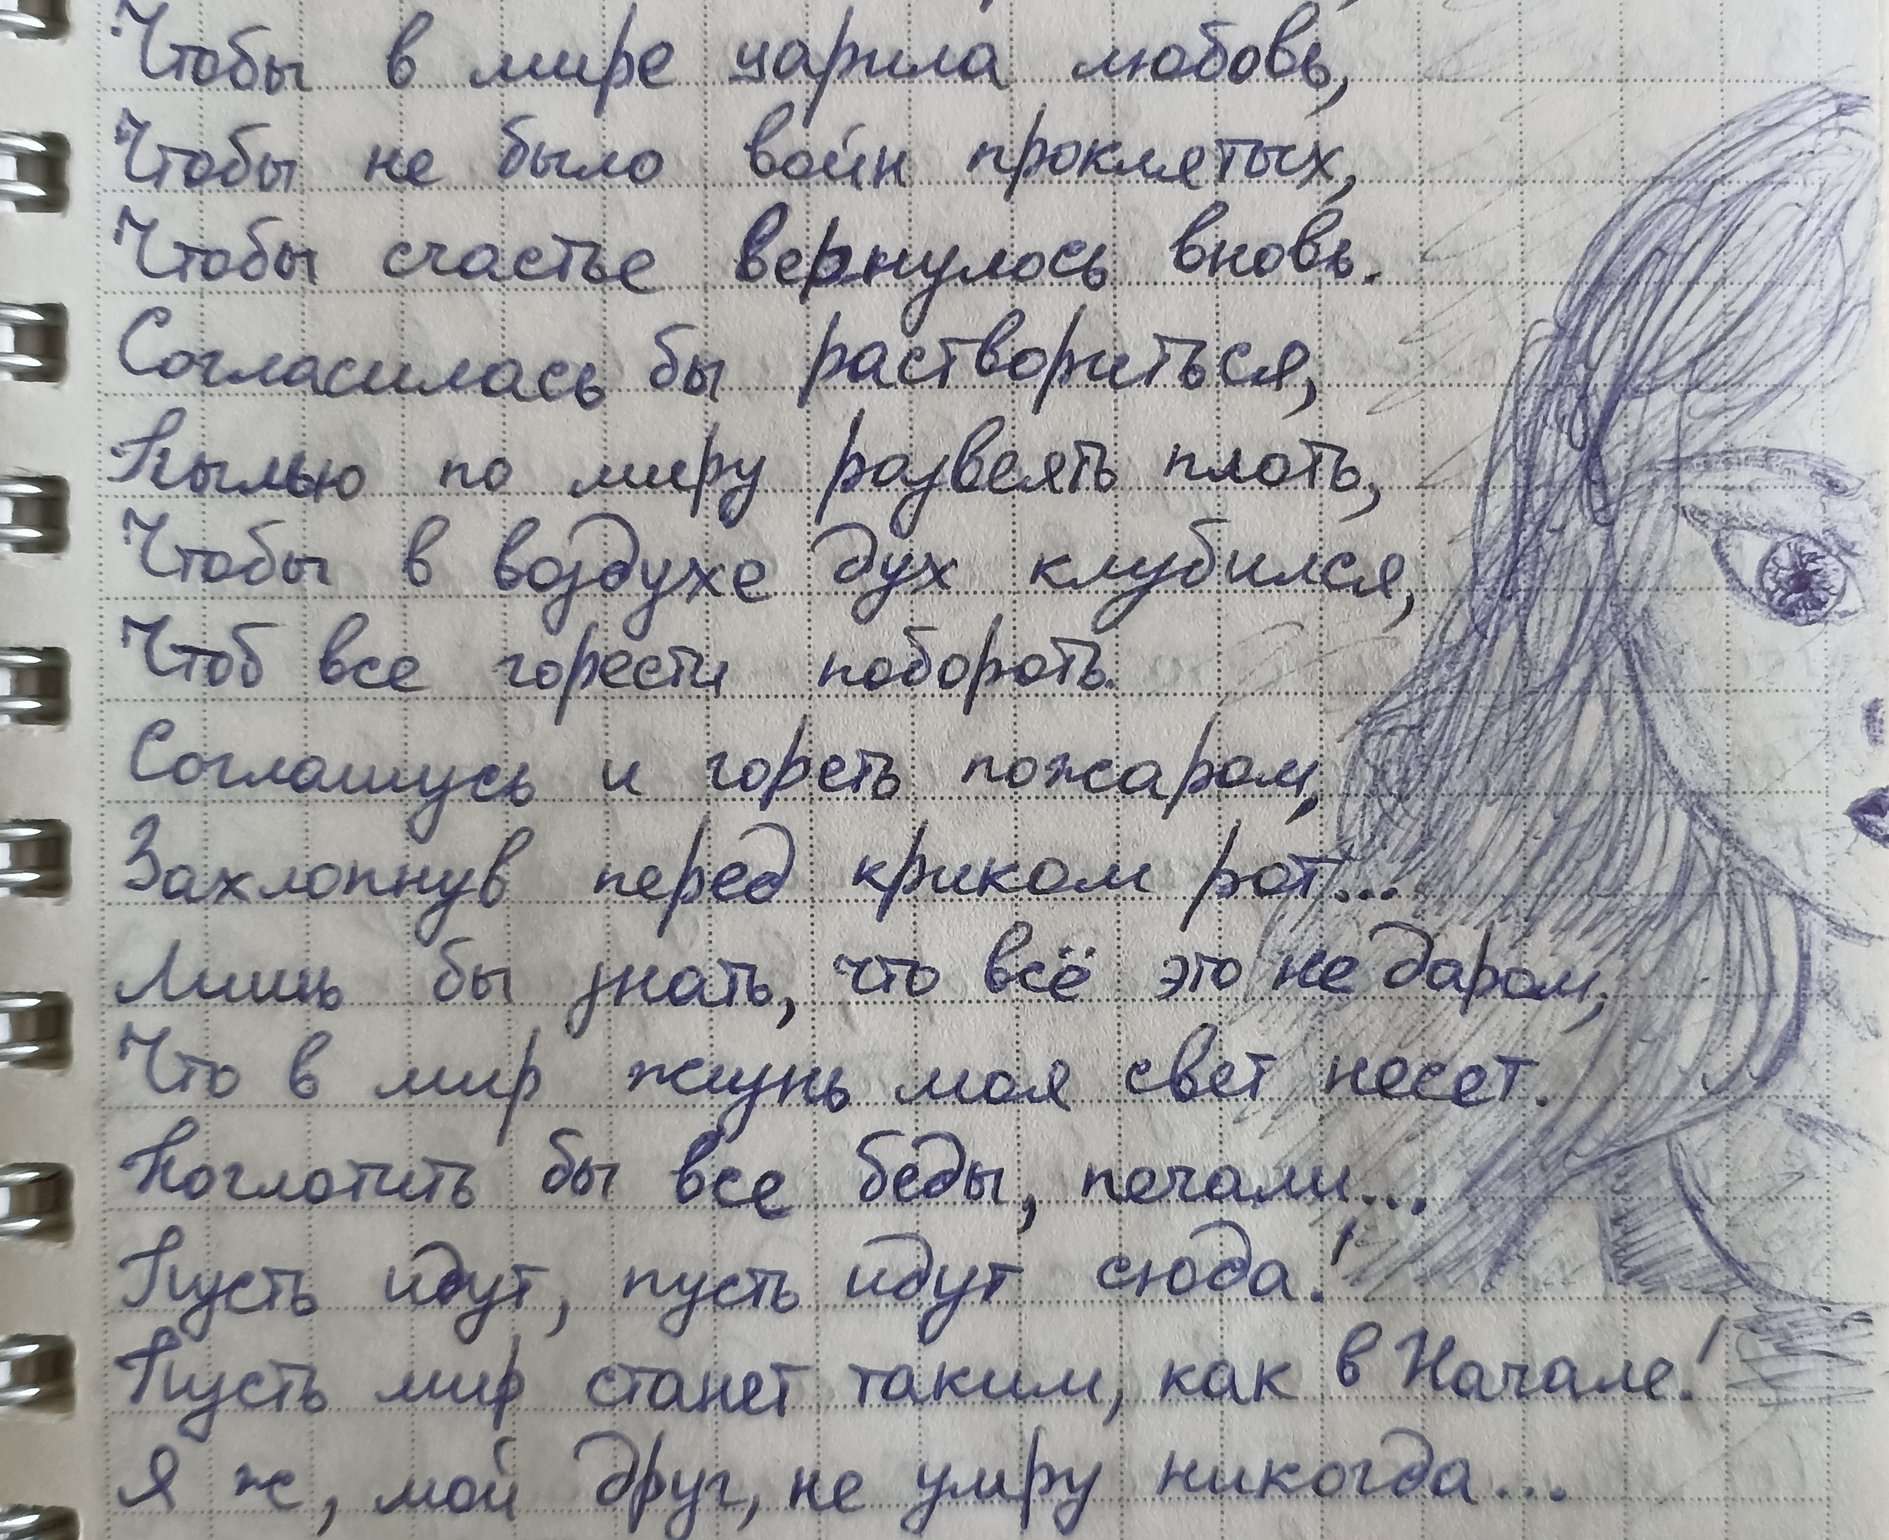 Чтобы в мире царила любовь,
Чтобы не было войн проклятых,
Чтобы счастье вернулось вновь.
Согласилась бы раствориться,
Пылью по миру развеять плоть,
Чтобы в воздухе дух клубился,
Чтоб все горести побороть.
Соглашусь и гореть пожаром,
Захлопнув перед криком рот...
Лишь бы знать, что всё это не даром,
Что в мир жизнь моя свет несет.
Поглотить бы все беды, печали...
Пусть идут, пусть идут сюда!
Пусть мир станет таким, как в Начале!
Я ж, мой друг, не умру никогда...